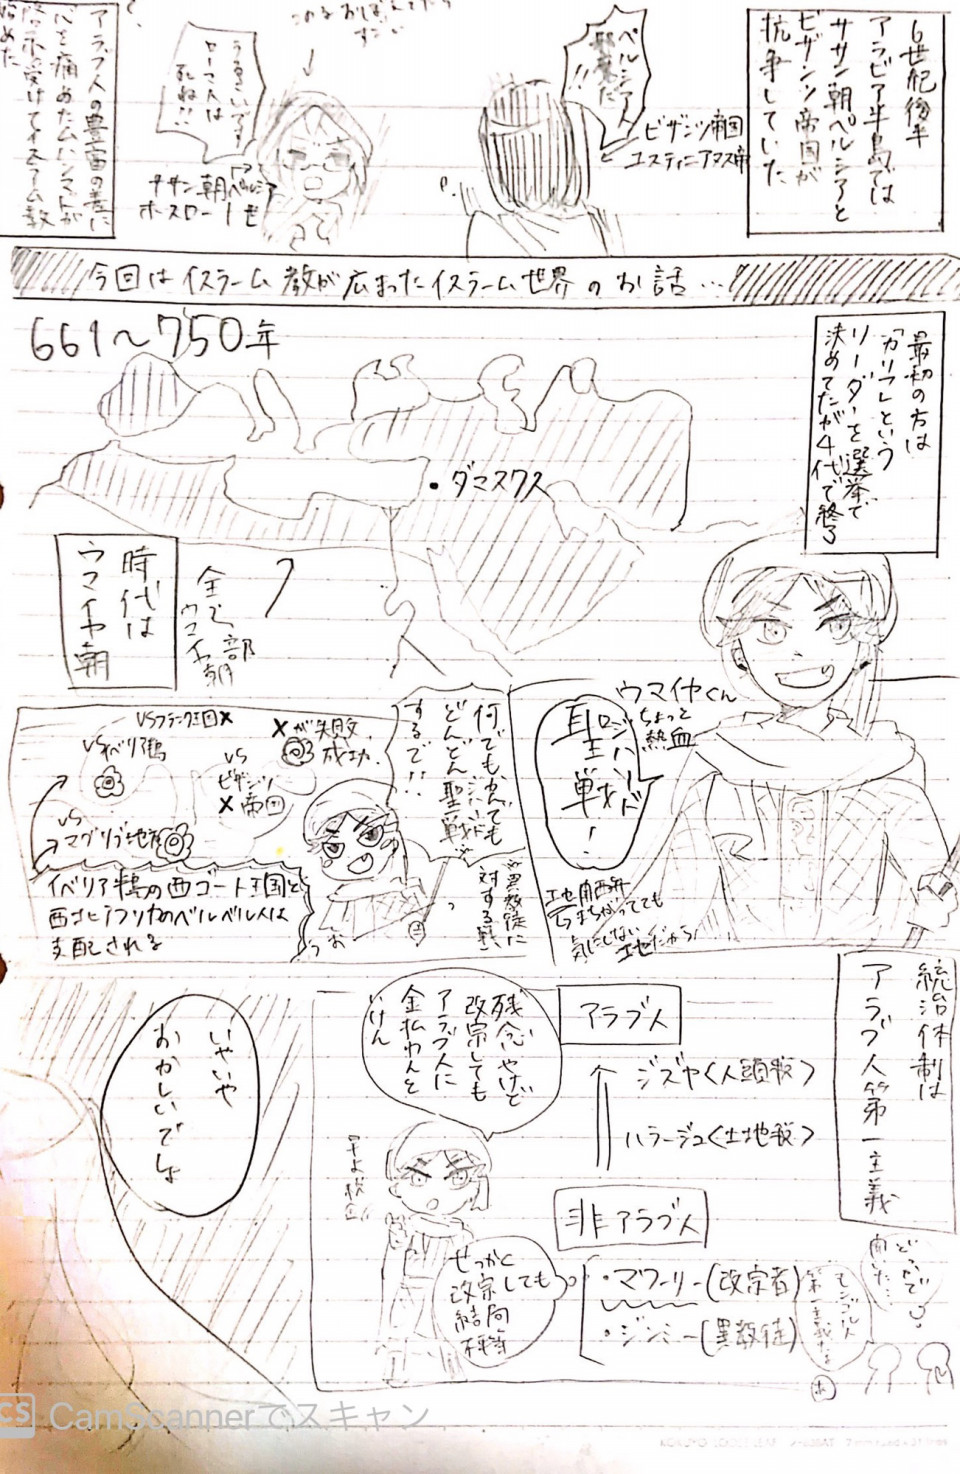 6世紀後半
アラビア半島では
ササン朝ペルシアと
ビザンツ帝国が
抗争していた
ペルシア人
邪魔だ
!!
ビザンツ帝国
ユスティニアヌス帝
うるさいです
ローマ人は
死ね!!
ササン朝ペルシア
ホスロー1世
アラブ人の貧富の差に
心を痛めたムハンマドが
啓示受けてイスラーム教
始めた
今回はイスラーム教が広まったイスラーム世界のお話…
最初の方は
「カリフ」という
リーダーを選挙で
決めてたが4代で終了
661〜750年
・ダマスクス
全部
ウマイヤ朝
時代は
ウマイヤ朝
ウマイヤくん
ちょっと
熱血
ジハード
聖戦!
気にしない
土地だから
何でもかんでも
どんどん聖戦
ジハード
するで!!
※異教徒に
対する戦
VSフランク王国×
×が失敗
成功
VSイベリア半島
VS
ビザンツ
×帝国
VS
マグリブ地方
イベリア半島の西ゴート王国と
西北アフリカのベルベル人は
支配される
統治体制は
アラブ人第一主義
アラブ人
ジズヤ<人頭税>
ハラージュ<土地税>
非アラブ人
・マワーリー(改宗者)
・ジンミー(異教徒)
残念やけど
改宗しても
アラブ人に
金払わんと
いけん
せっかく
改宗しても
結局
不平等
どっかで
聞いた…
モンゴル人
第一主義かな
いやいや
おかしいでしょ
CS CamScannerでスキャン